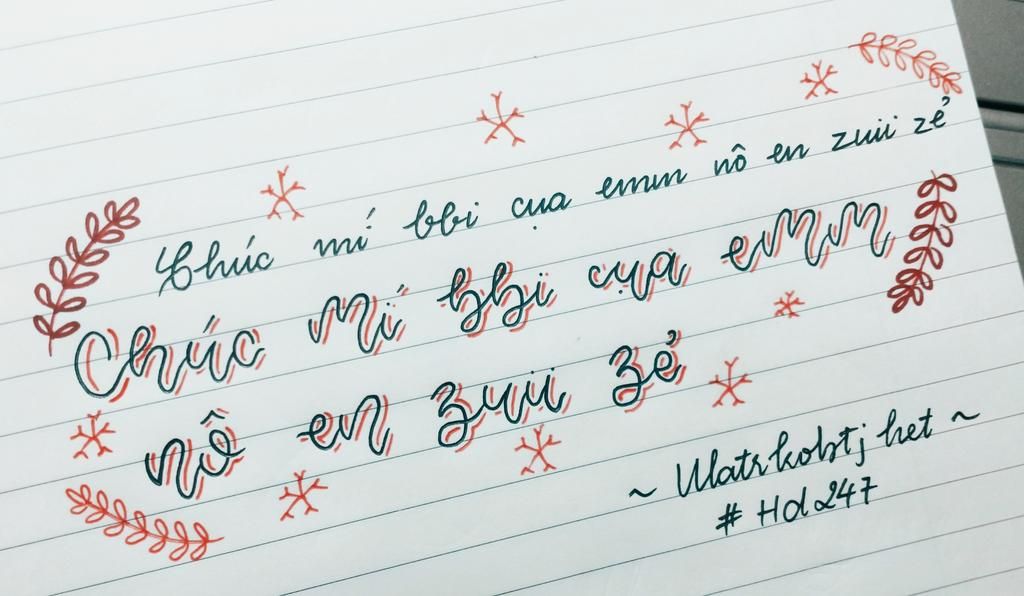 Chúc mí bbi cụa emm nô en zuii zẻ
Chúc mí bbi cụa emm
nô en zuii zẻ
# Hd247